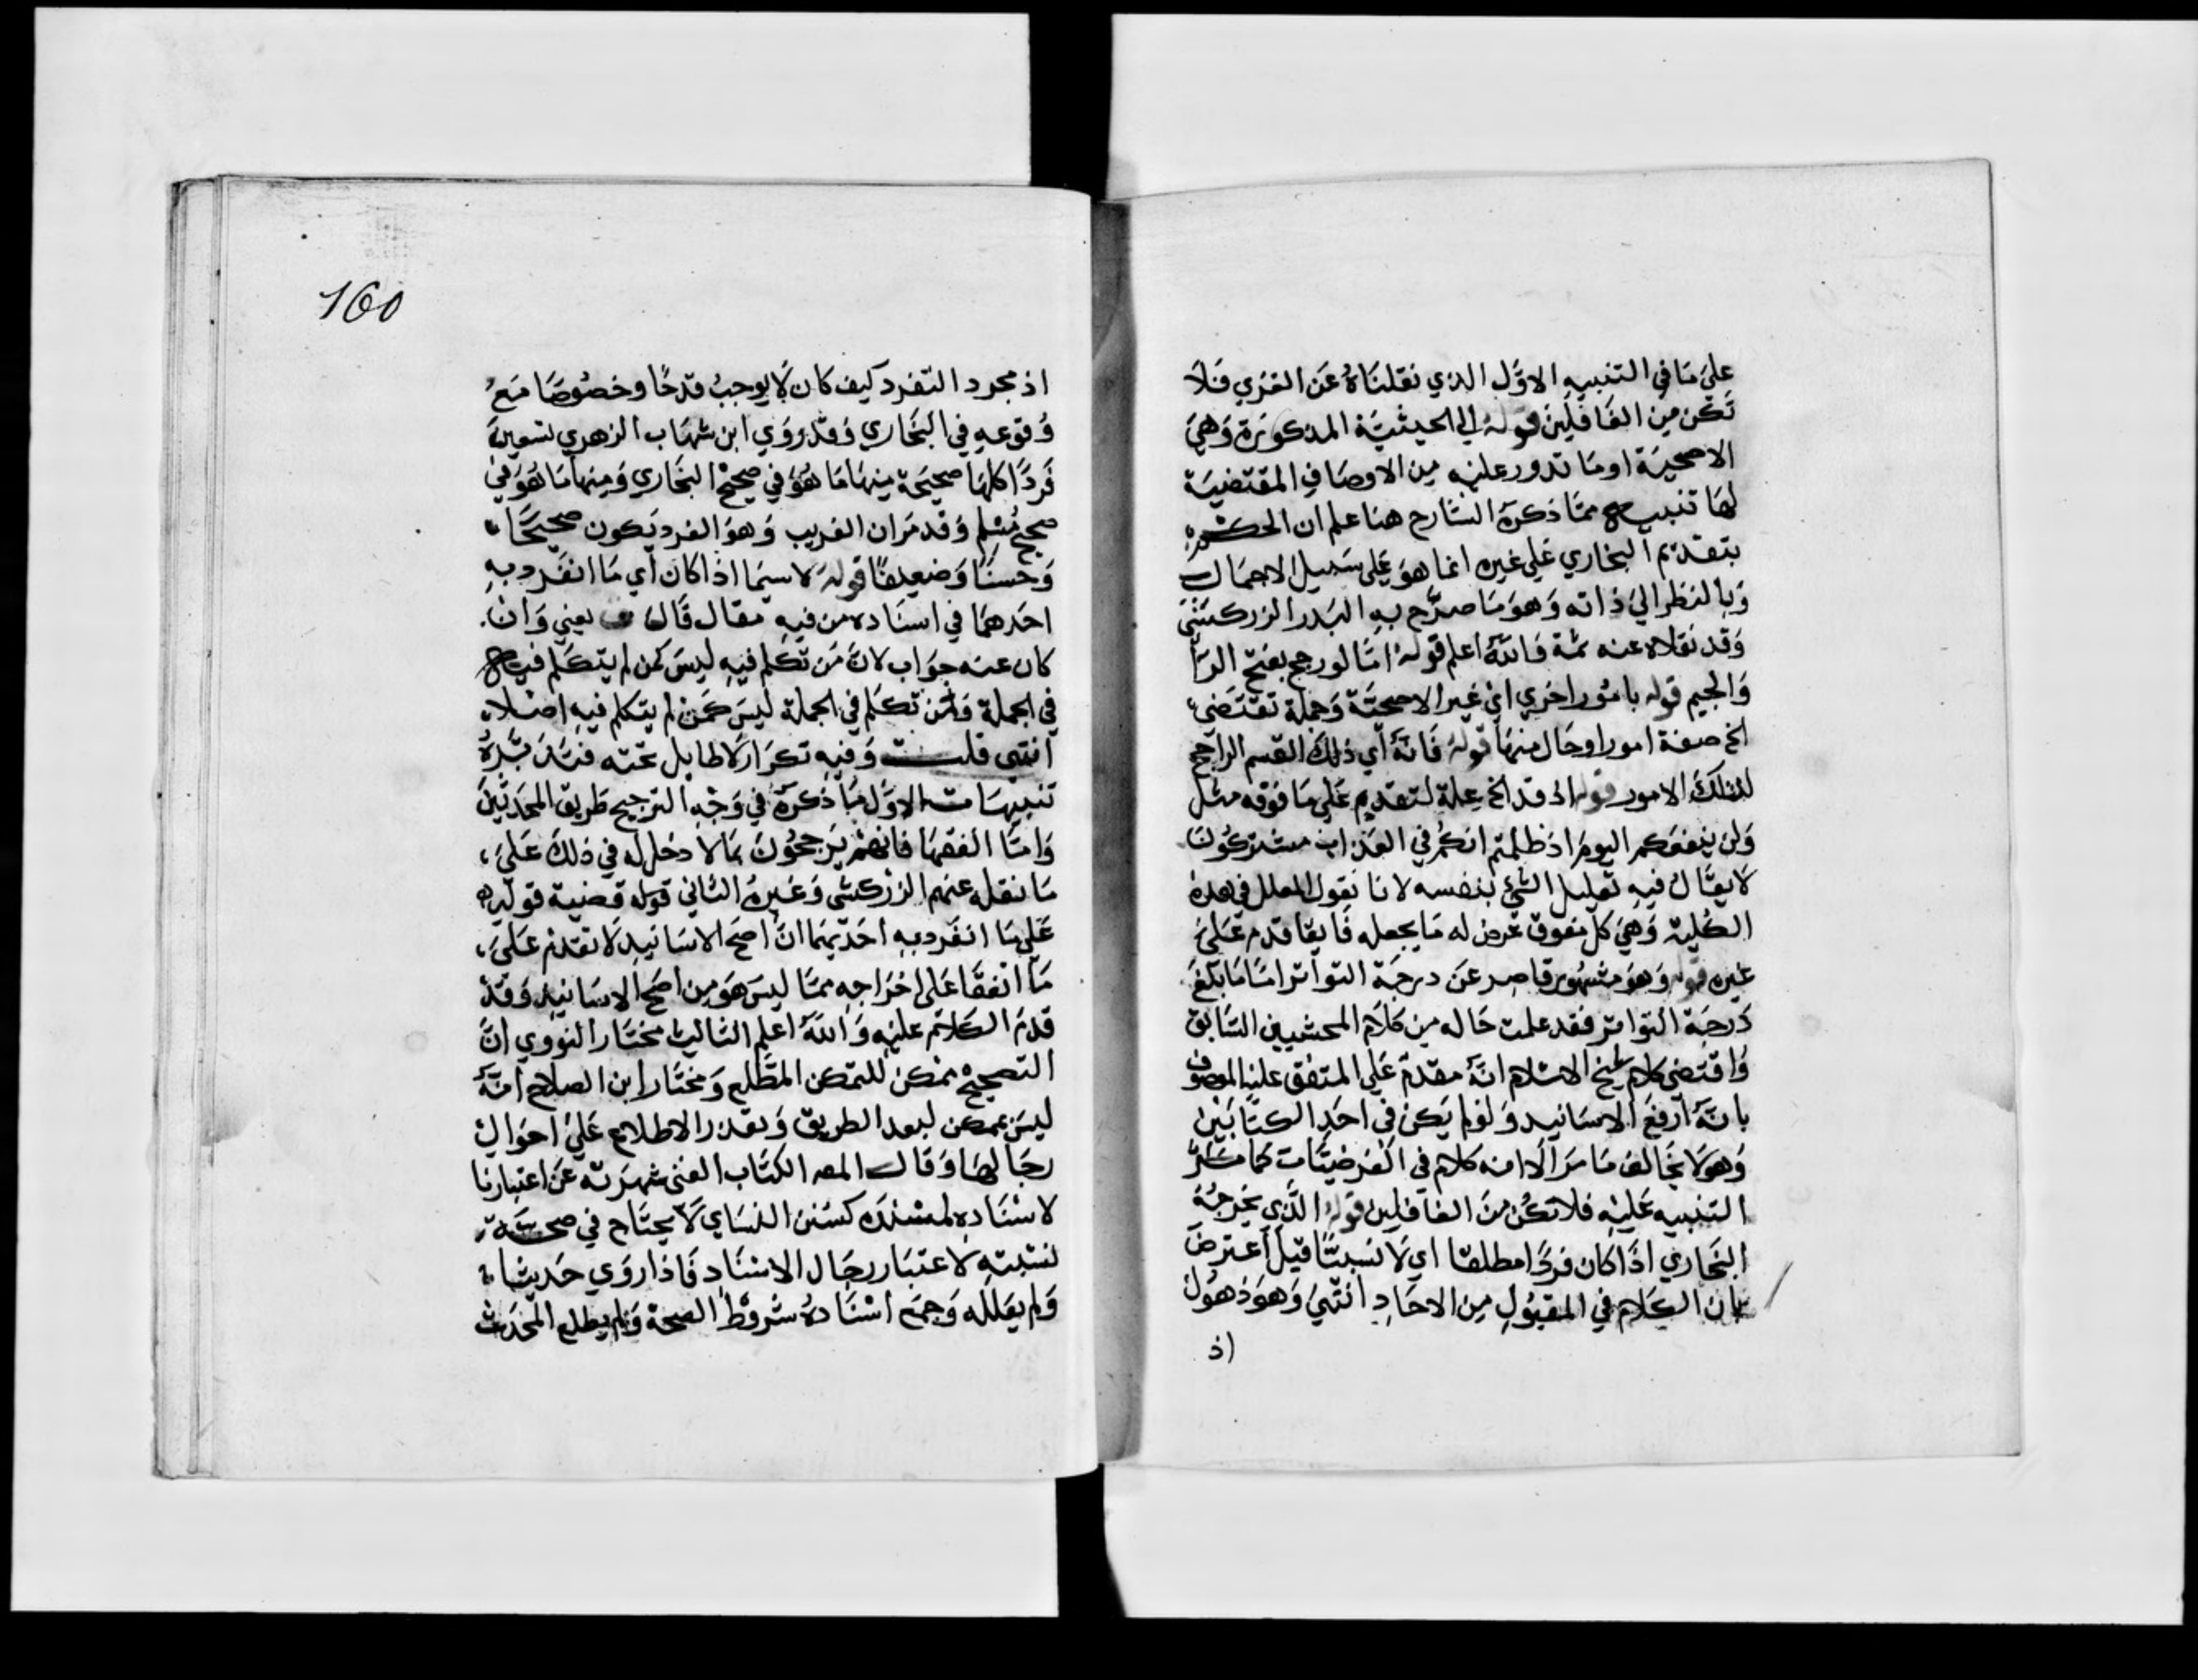 على ما في التنبيه الاول الذي نقلناه عن الغزي فلا
تكن من الغافلين قوله الى الحيثية المذكورة وهي
الاصحية او ما تدور عليه من الاوصاف المقتضية
لها تنبيه مما ذكره الشارح هنا علم ان الحكم
بتقديم البخاري على غيره انما هو على سبيل الاجمال
وبالنظر الى ذاته وهو ما صرح به البدر الزركشي
وقد نقلاه عنه ثمة فالله اعلم قوله اما لو رجح بفتح الرا
والجيم قوله بامور اخري اي غير الاصحية وجملة تقتضي
الخ صفة امور او حال منها قوله فانه اي ذلك القسم الراجح
لتلك الامور قوله اذ قد الخ علة لتقديم على ما فوقه مثل
ولن ينفعكم اليوم اذ ظلمتم انكم في العذاب مشتركون
لا يقال فيه تعليل الشي بنفسه لانا نقول المعلل في هذه
الكلية وهي كل مفوق عرض له ما يجعله فايقا قدم على
غيره قوله وهو مشهور قاصر عن درجة التواتر اما ما بلغ
درجة التواتر فقد علمت حاله من كلام المحشيين السابق
واقتضى كلام شيخ الاسلام انه مقدم على المتفق عليه الموصوف
بانه ارفع الاسانيد ولو لم يكن في احد الكتابين
وهو لا يخالف ما مر الا انه كلام في الفرضيات كما مر
التنبيه عليه فلا تكن من الغافلين قوله الذي يخرجه
البخاري اذا كان فردا مطلقا اي لا نسبيا قيل اعترض
بان الكلام في المقبول من الاحاد انتهي وهو ذهول
اذ
160
اذ مجرد التفرد كيف كان لا يوجب قدحا وخصوصا مع
وقوعه في البخاري وقد روي ابن شهاب الزهري تسعين
فردا كلها صحيحة منها ما هو في صحيح البخاري ومنها ما هو في
صحيح مسلم وقد مر ان الغريب وهو الفرد يكون صحيحا
وحسنا وضعيفا قوله لا سيما اذا كان اي ما انفرد به
احدهما في اسناده من فيه مقال قال يعني وان
كان عنه جواب لان من تكلم فيه ليس كمن لم يتكلم فيه
في الجملة ومن تكلم في الجملة ليس كمن لم يتكلم فيه اصلا
انتهي قلت وفيه تكرار لا طايل تحته فتدبره
تنبيهات الاول ما ذكره في وجه الترجيح طريق المحدثين
واما الفقها فانهم يرجحون بما لا دخل له في ذلك على
ما نقله عنهم الزركشي وغيره الثاني قوله قضية قوله
على ما انفرد به احدهما ان اصح الاسانيد لا تقدم على
ما اتفقا على اخراجه مما ليس هو من اصح الاسانيد وقد
قدم الكلام عليه والله اعلم الثالث مختار النووي ان
التصحيح ممكن للمتمكن المطلع ومختار ابن الصلاح انه
ليس بممكن لبعد الطريق وتعذر الاطلاع على احوال
رجالها وقال المص الكتاب الغني شهرته عن اعتبارنا
لاسناده لمسنده كسنن النساي لا يحتاج في صحة
نسبته لاعتبار رجال الاسناد فاذا روي حديثا
ولم يعلله وجمع اسناده شروط الصحة ولم يطلع المحدث